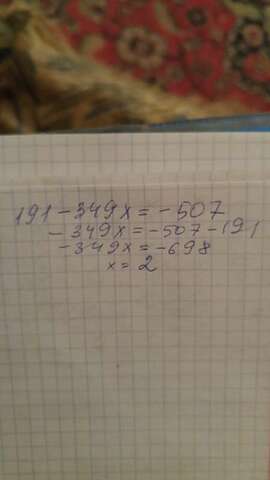 191 - 349x = - 507
- 349x = - 507 - 191
- 349x = - 698
x = 2